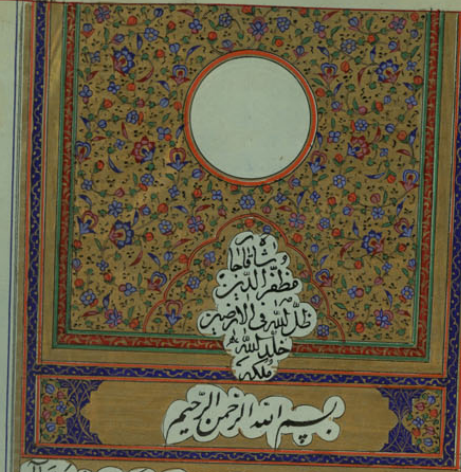 شاه قاجار
مظفر الدین
ظل الله فی الارضین
خلد الله
ملکه
بسم الله الرحمن الرحیم